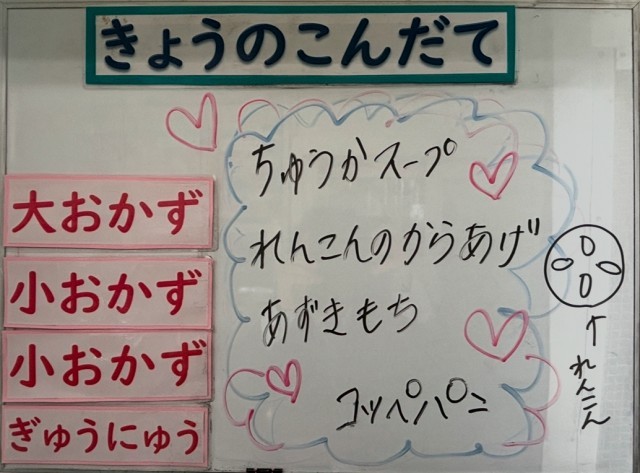 きょうのこんだて
大おかず
小おかず
小おかず
ぎゅうにゅう
ちゅうかスープ
れんこんのからあげ
あずきもち
コッペパン
↑
れんこん